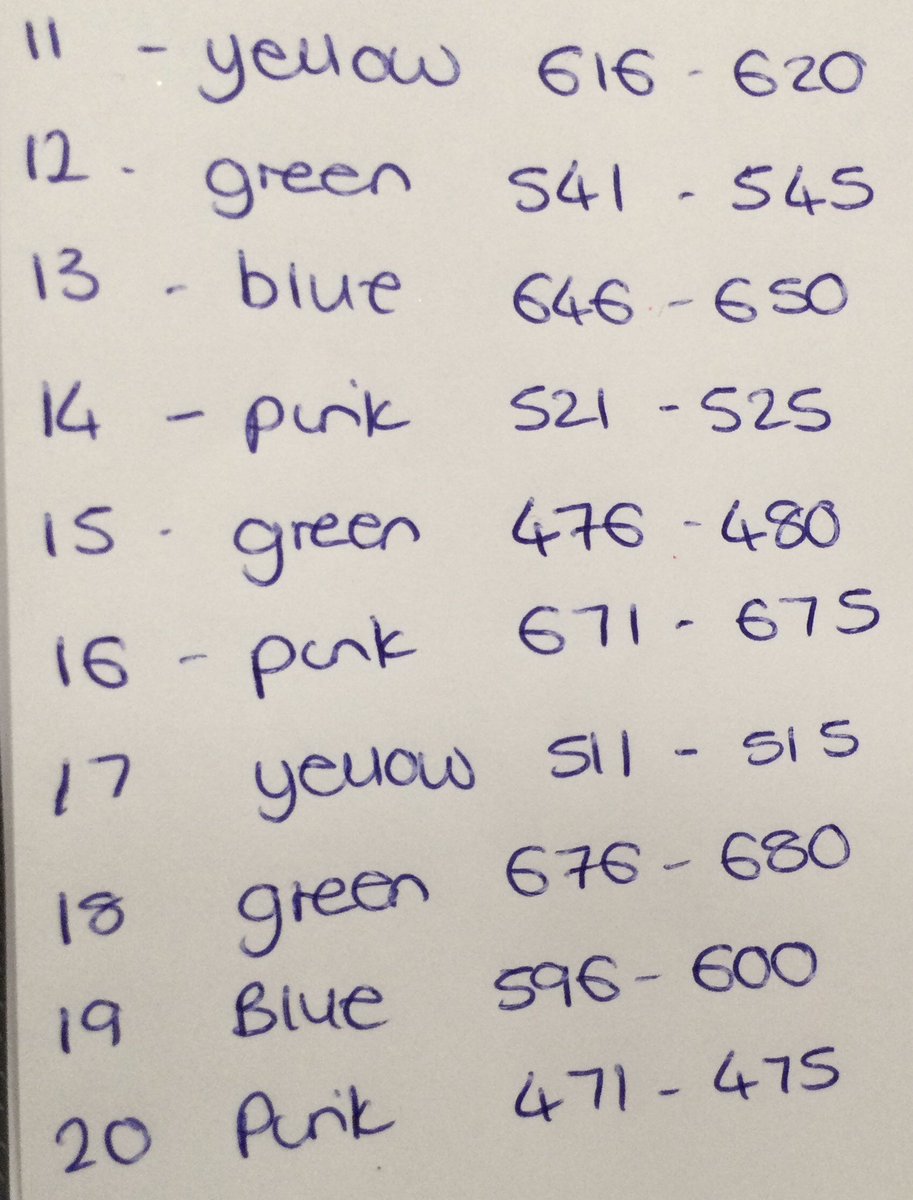 11 - yellow 616 - 620
12 - green 541 - 545
13 - blue 646 - 650
14 - pink 521 - 525
15 - green 476 - 480
16 - pink 671 - 675
17 yellow 511 - 515
18 green 676 - 680
19 Blue 596 - 600
20 Pink 471 - 475